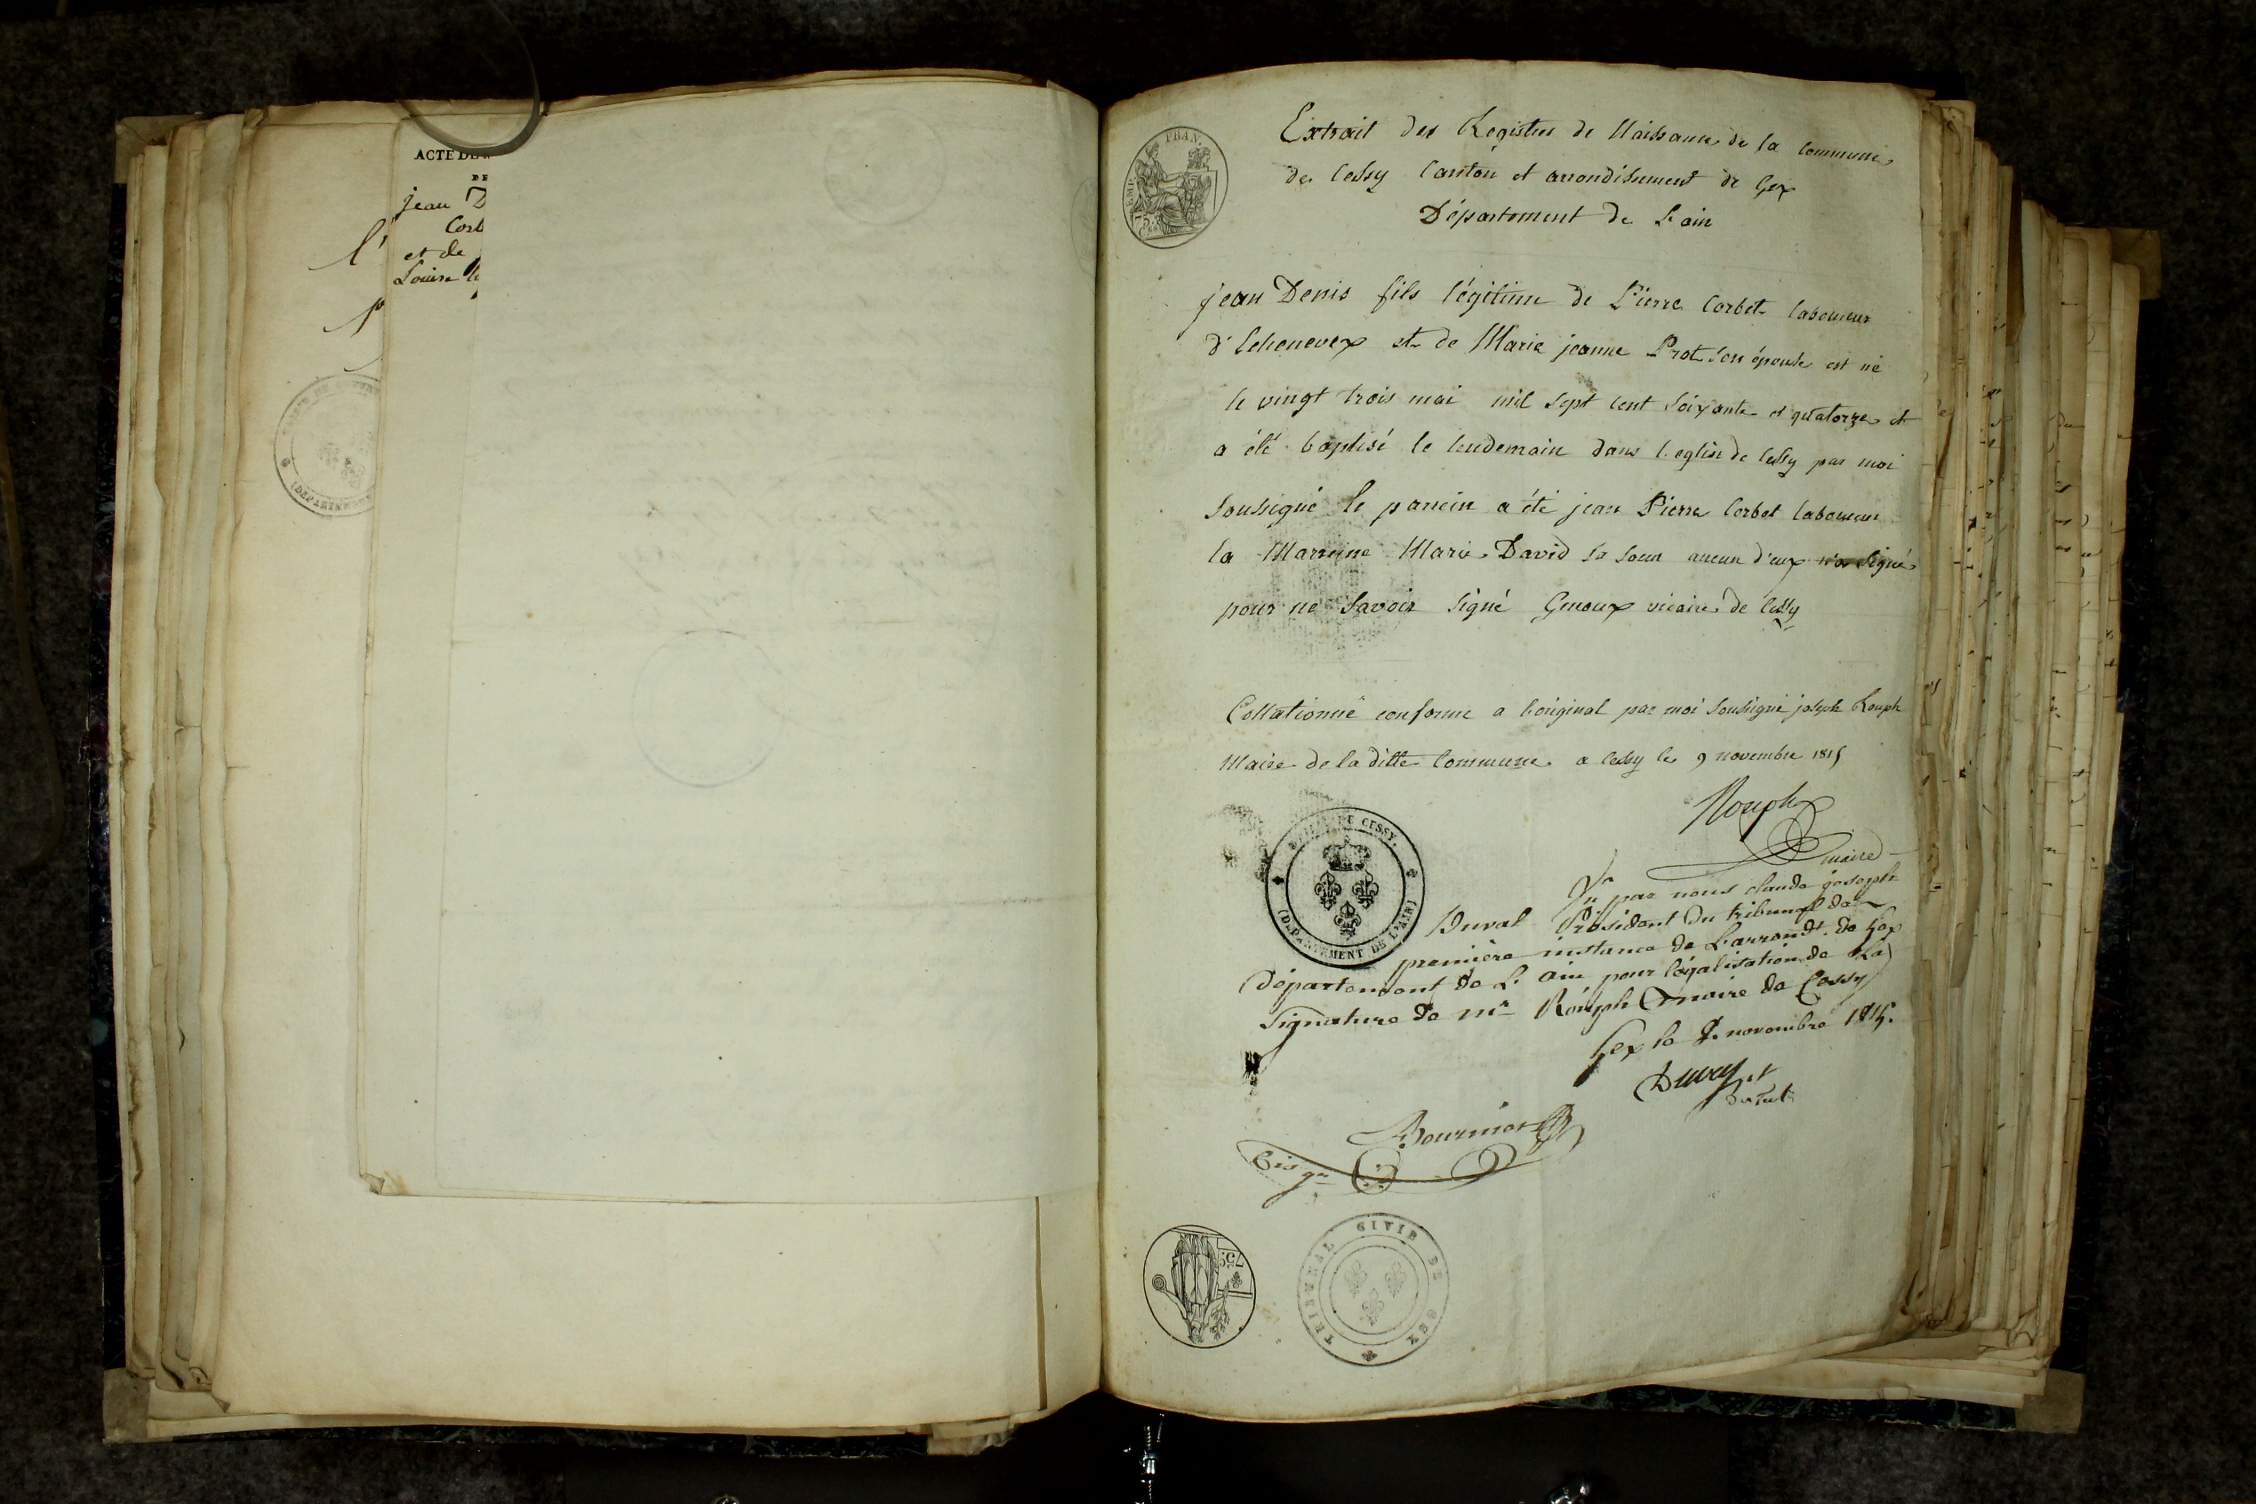 ACTE DE
DE
jean D
Corb
et de
Louise
l'
Extrait des Registres de Naissance de la commune
de Cessy Canton et arrondissement de Gex
Département de L'ain
jean Denis fils légitime de Pierre Corbet laboureur
d'Echenevex et de Marie jeanne Prot son épouse est né
le vingt trois mai mil sept cent soixante et quatorze et
a été baptisé le lendemain dans l'eglise de Cessy par moi
soussigné le parrein a été jean Pierre Corbet laboureur
la Marreine Marie David sa soeur aucun d'eux n'a signé
pour ne savoir signé Genoux vicaire de Cessy
Collationné conforme a l'original par moi soussigné joseph Rouph
Maire de la ditte Commune a Cessy le 9 novembre 1815
Rouph
maire
Vu par nous claude joseph
Duval Président du tribunal de
première instance de L'arrondt. de Gex
Département de L'ain pour légalisation de La
signature de mr Rouph maire de Cessy
Gex le novembre 1815.
Duval
Bournier
TIMB
FRAN.
75 c
MAIRIE DE CESSY.
(DEPARTEMENT DE L'AIN)
75c
TRIBUNAL CIVIL DE GEX